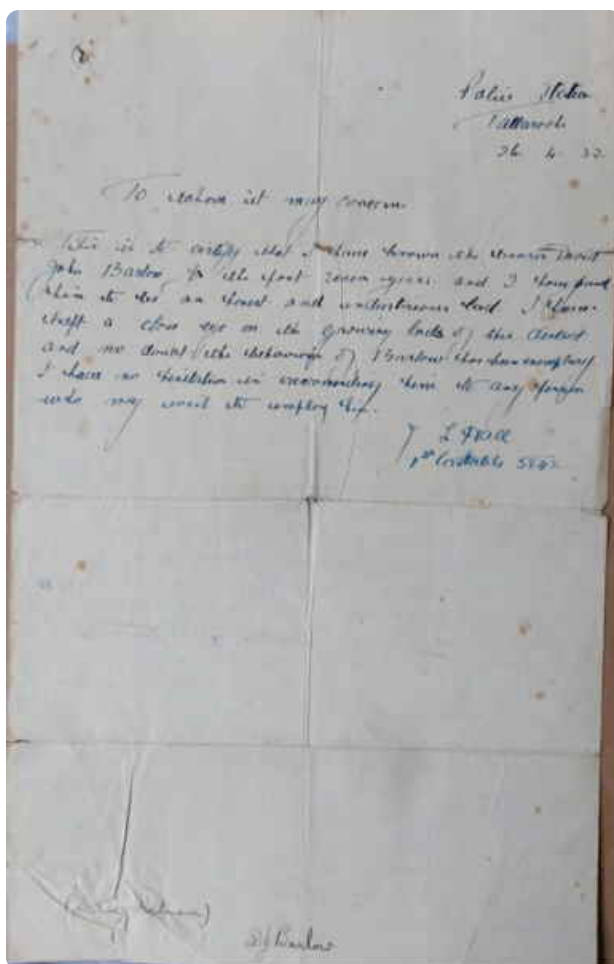 Police Station
26 4 32
To whom it may concern
This is to certify that I have known the bearer
John Barlow for the past seven years and I have found
him to be an honest and industrious lad I have
kept a close eye on the growing lads of this district
and no doubt the behaviour of Barlow has been exemplary
I have no hesitation in recommending him to any person
who may want to employ him.
1st Constable
Barlow